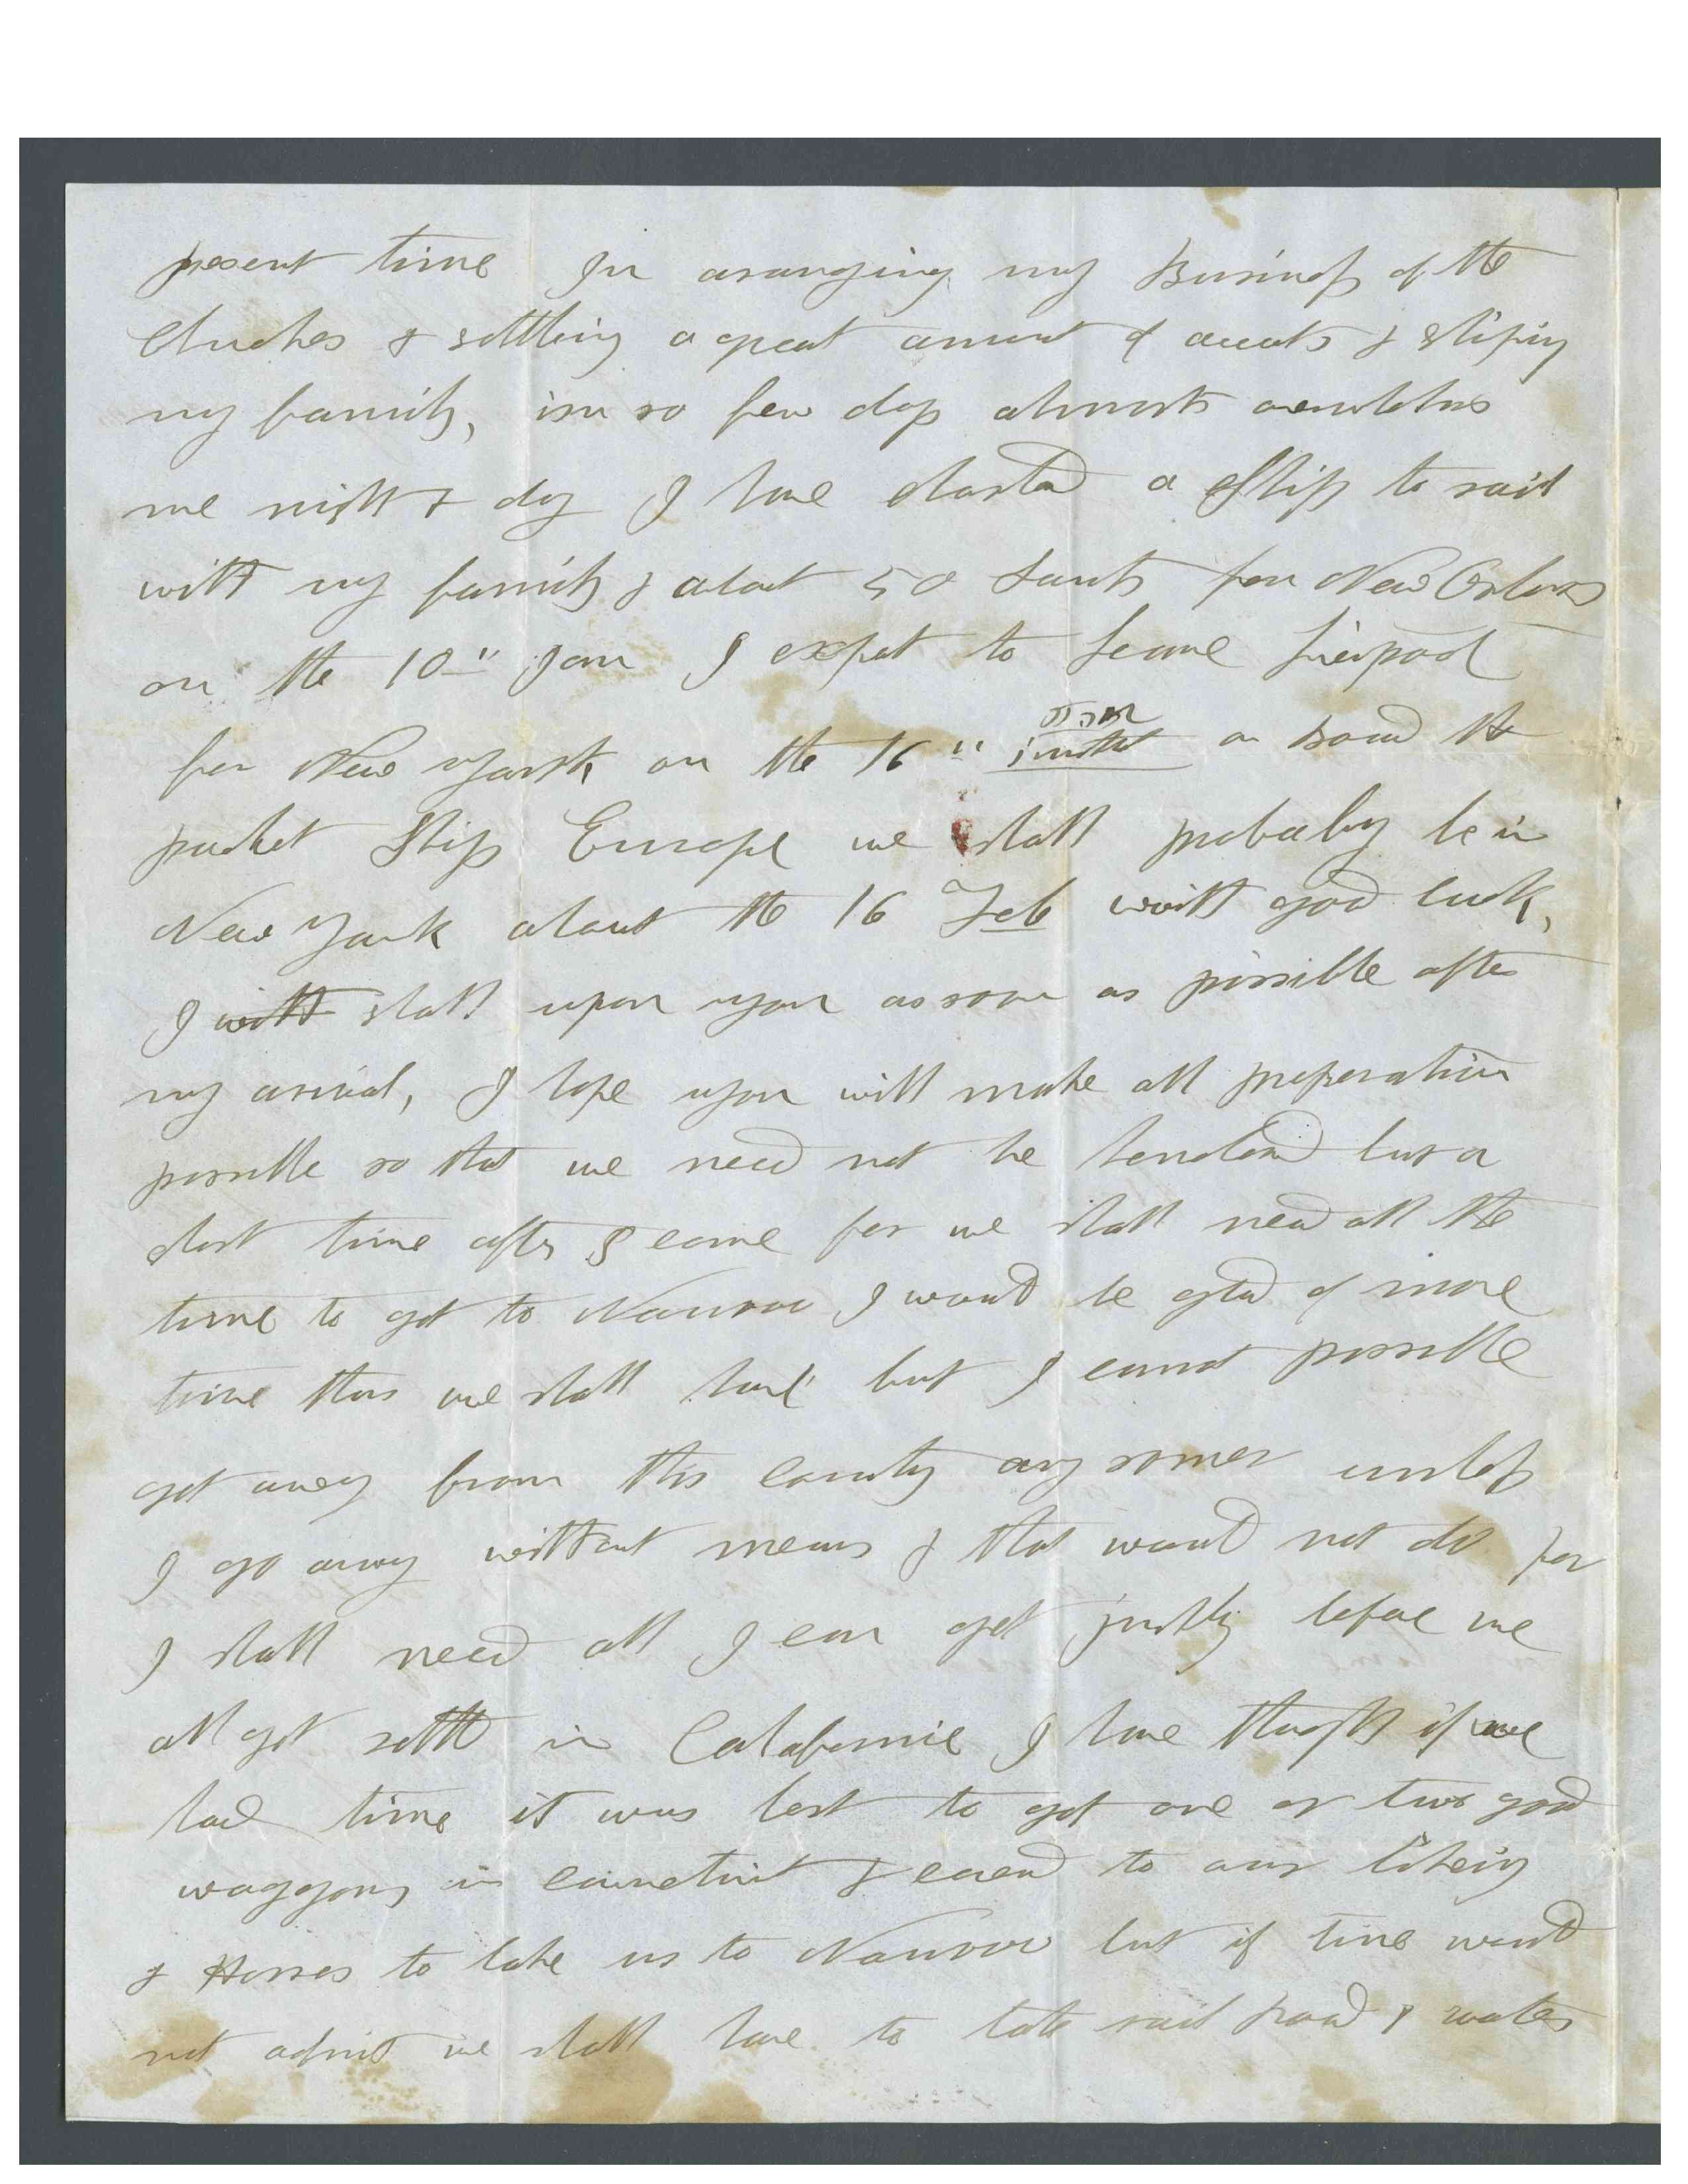 present time In aranging my Business of the
Churches & settling a great amount of acounts & shiping
my family, in so few days almost overwhelms
me night & day I have charterd a Ship to sail
with my family & about 50 Saints for New Orleans
on the 10" Jan I expect to leave Liverpool
for New York on the 16" on board the
packet Ship Europe we shall probabley be in
New York about the 16 Feb with good luck,
I will shall upon you as soon as possible after
my arival, I hope you will make all preparation
possible so that we need not be hendered but a
short time after I come for we shall need all the
time to get to Nauvoo I would be glad of more
time than we shall have but I cannot possible
get away from this country any sooner unless
I go away without means & that would not do for
I shall need all I can get justly before we
all get settld in Calafornia I have thought if we
had time it was best to get one or two good
waggons in Connecticut & coverd to our likeing
& Horses to take us to Nauvoo but if time would
not admit we shall have to take rail Road & water